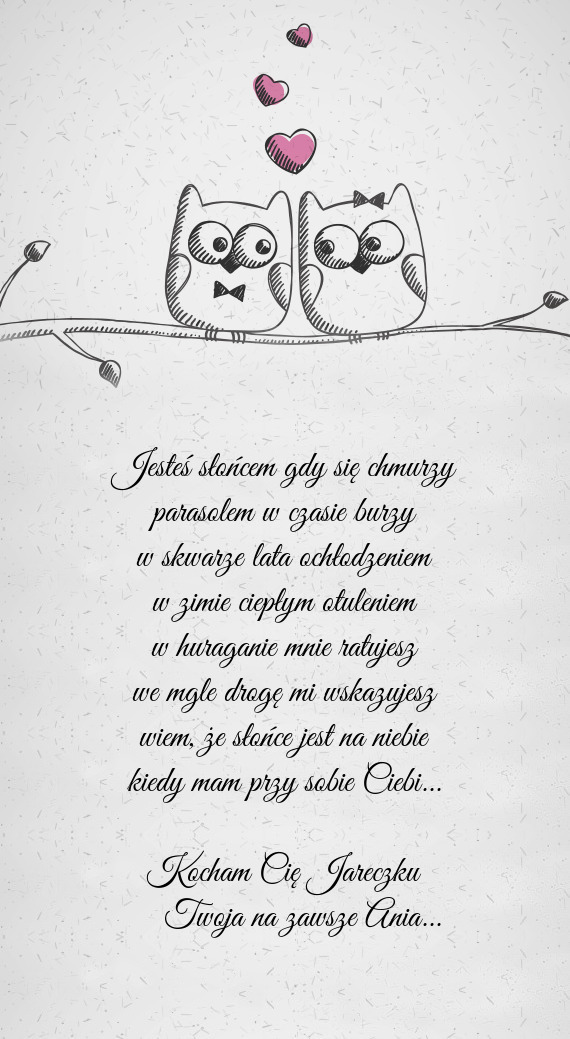 Jesteś słońcem gdy się chmurzy
parasolem w czasie burzy
w skwarze lata ochłodzeniem
w zimie ciepłym otuleniem
w huraganie mnie ratujesz
we mgle drogę mi wskazujesz
wiem, że słońce jest na niebie
kiedy mam przy sobie Ciebi...
Kocham Cię Jareczku
Twoja na zawsze Ania...